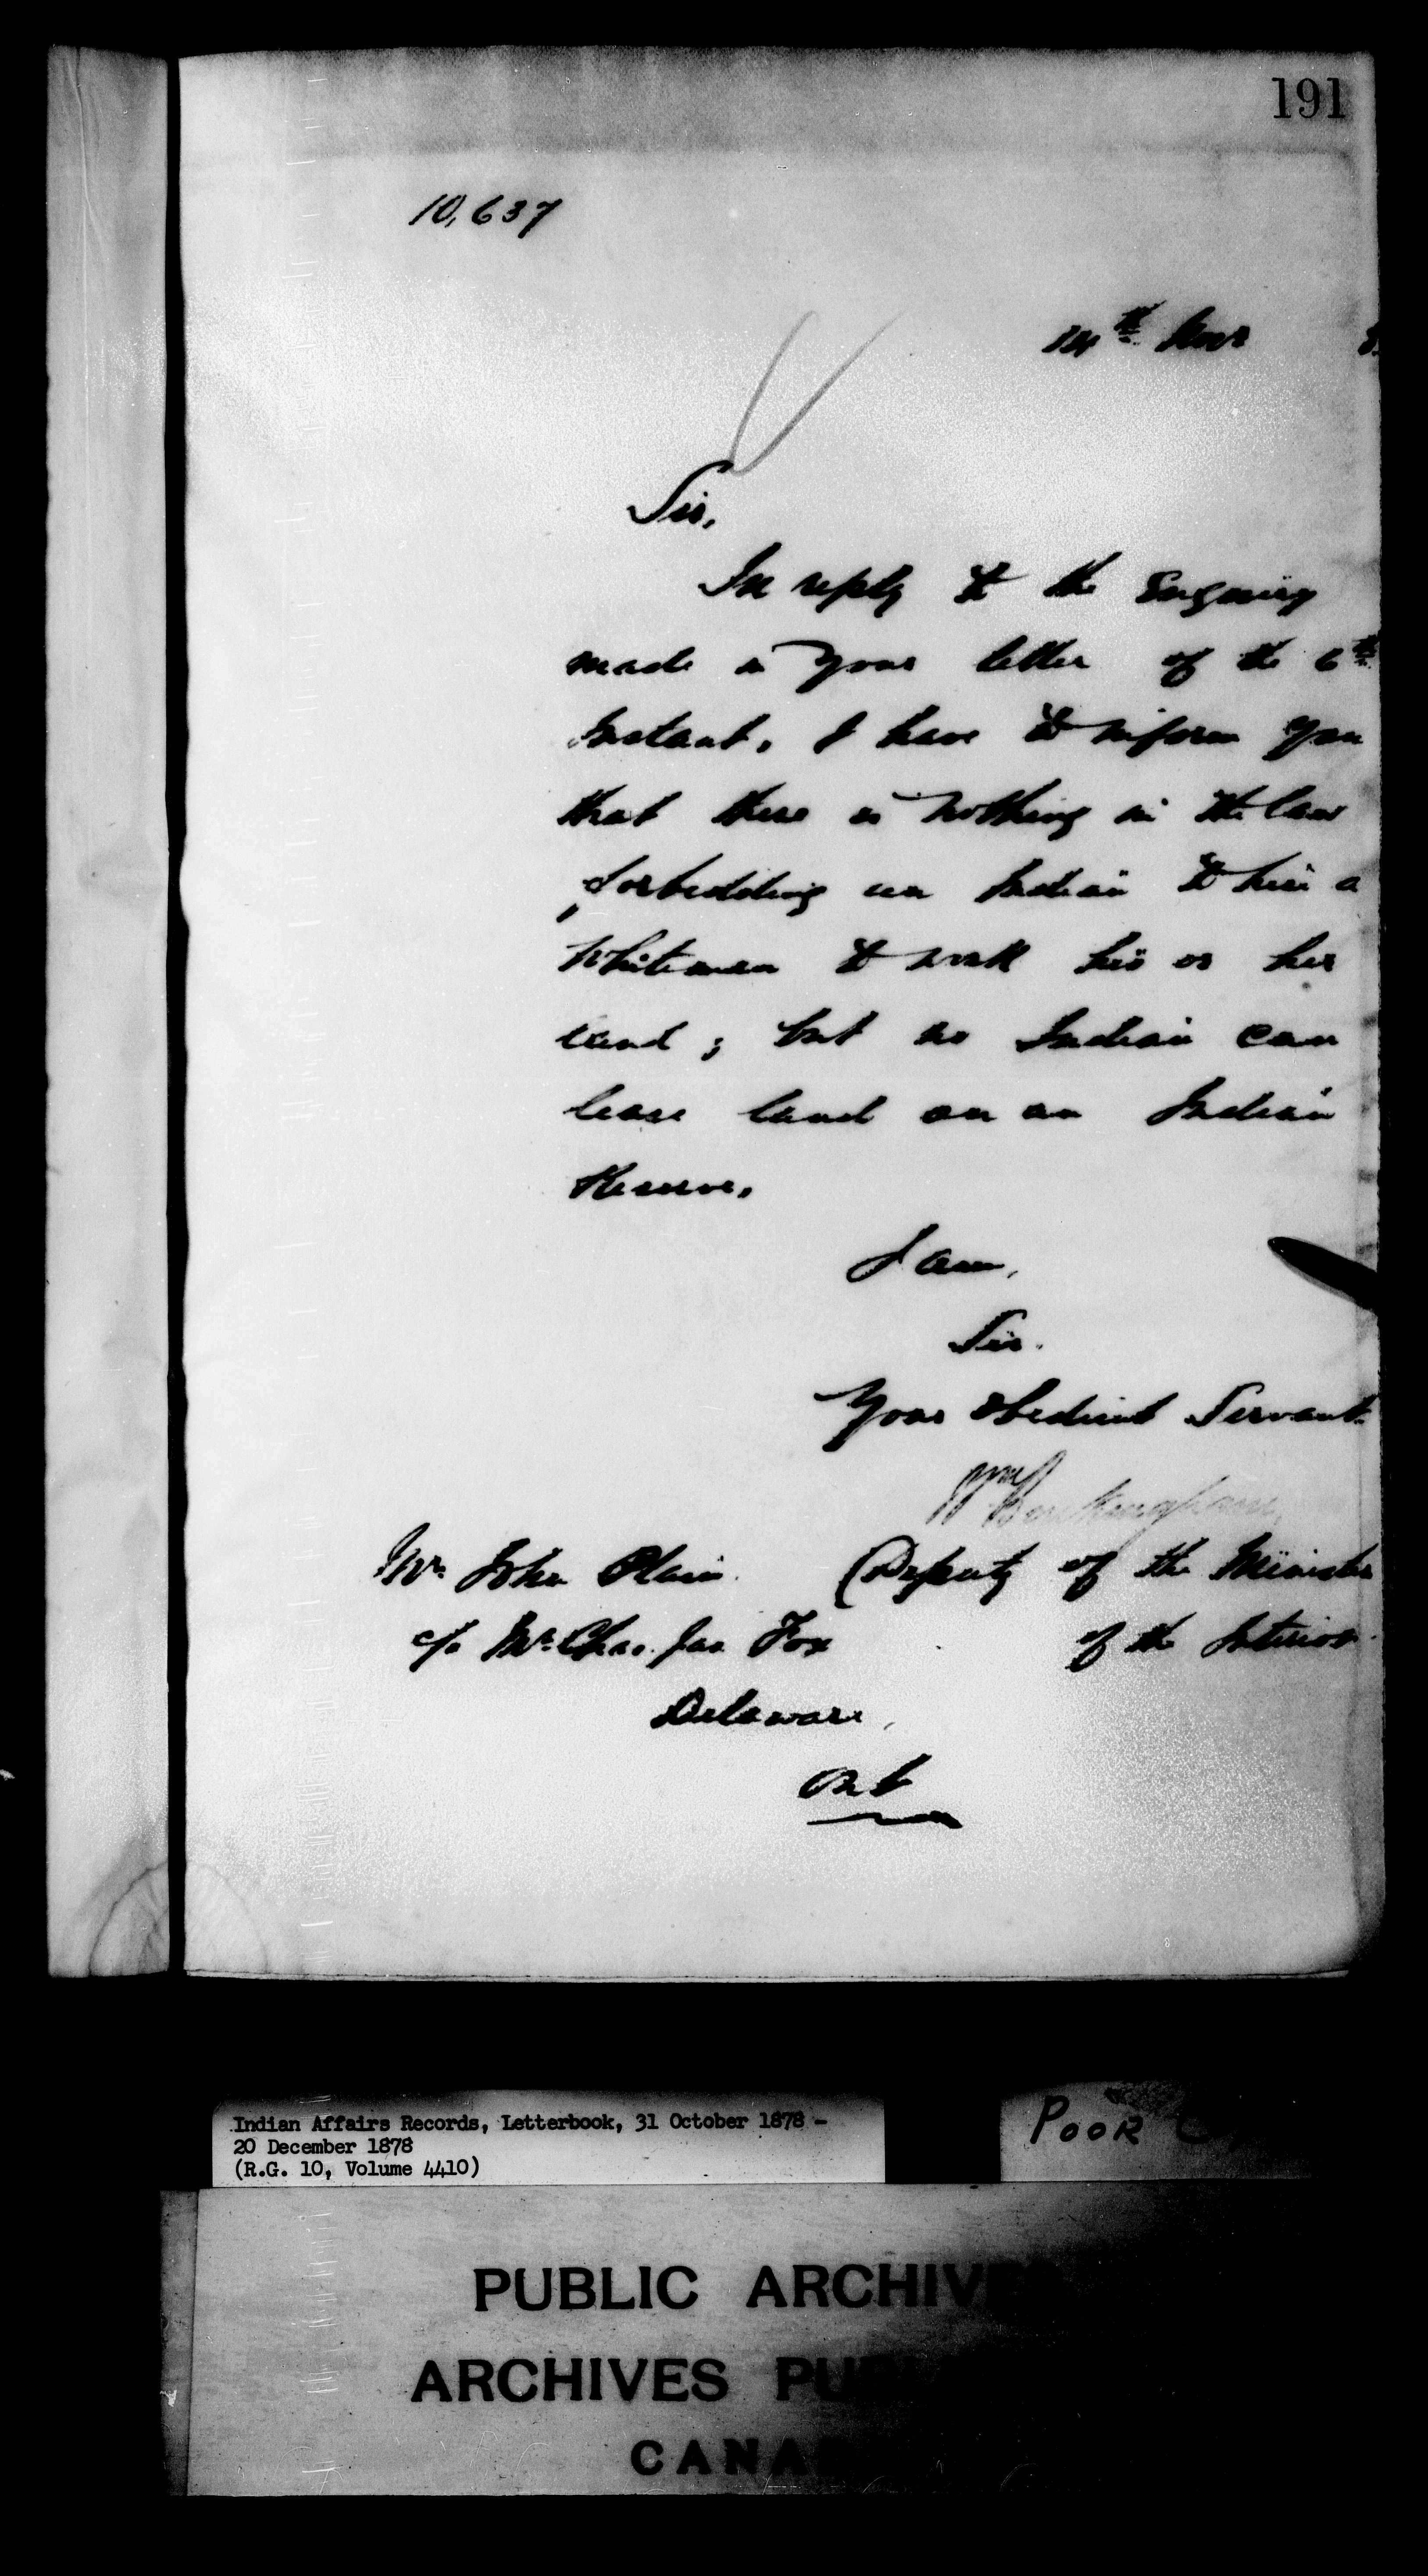 191
10,637
14th Novr 8
Sir,
In reply to the Enquiry
made in your letter of the 6th
Instant, I have to inform you
that there is nothing in the law
forbidding an Indian to hire a
Whiteman to work his or her
land; but no Indian can
lease land on an Indian
Reserve.
I am,
Sir.
Your Obedient Servant
Wm Buckingham,
Mr. John Plain. Deputy of the Minister
c/o Mr. Chas. Jas Fox of the Interior.
Delaware,
Ont
Indian Affairs Records, Letterbook, 31 October 1878 -
20 December 1878
(R.G. 10, Volume 4410)
POOR
PUBLIC ARCHIVES
ARCHIVES PUBL
CANA